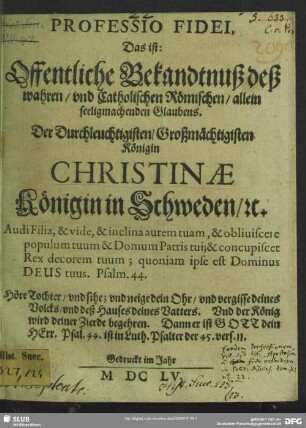 PROFESSIO FIDEI,
Das ist:
Offentliche Bekandtnuß deß
wahren / vnd Catholischen Römischen / allein
seeligmachenden Glaubens.
Der Durchleuchtigisten / Großmächtigisten
Königin
CHRISTINÆ
Königin in Schweden / ꝛc.
Audi Filia, & vide, & inclina aurem tuam, & obliuiscere
populum tuum & Domum Patris tui; & concupiscet
Rex decorem tuum; quoniam ipse est Dominus
DEUS tuus. Psalm. 44.
Höre Tochter / vnd sihe; vnd neige dein Ohr / vnd vergisse deines
Volcks / vnd deß Hauses deines Vatters. Vnd der König
wird deiner Zierde begehren. Dann er ist GOTT dein
HErr. Psal. 44. ist in Luth. Psalter der 45. vers. 11.
Gedruckt im Jahr
M DC LV.
Hist. Suec.
327, 125
SLUB